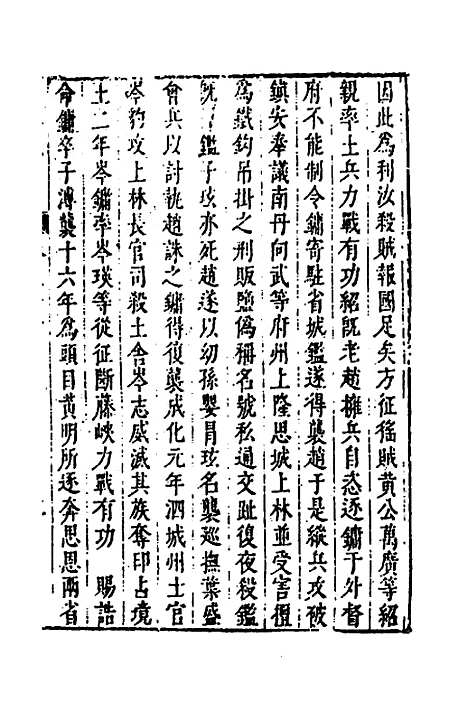 因此為利汝殺賊報國足矣方征猺賊黃公萬廣等紹
親率土兵力戰有功紹旣老趙擁兵自恣逐鏞于外督
府不能制令鏞寄駐省城鑑遂得襲趙于是縱兵攻破
鎮安奉議南丹向武等府州上隆思城上林並受害復
爲鐵鈎吊掛之刑販鹽僞稱名號私通交趾復夜殺鑑
旣而鑑子玹亦死趙遂以幼孫嬰冒玹名襲巡撫葉盛
會兵以討執趙誅之鏞得復襲成化元年泗城州土官
岑豹攻上林長官司殺土舍岑志威滅其族奪印占境
土二年岑鏞率岑瑛等從征斷藤峽力戰有功　賜誥
命鏞卒子溥襲十六年爲頭目黃明所逐奔思恩兩省